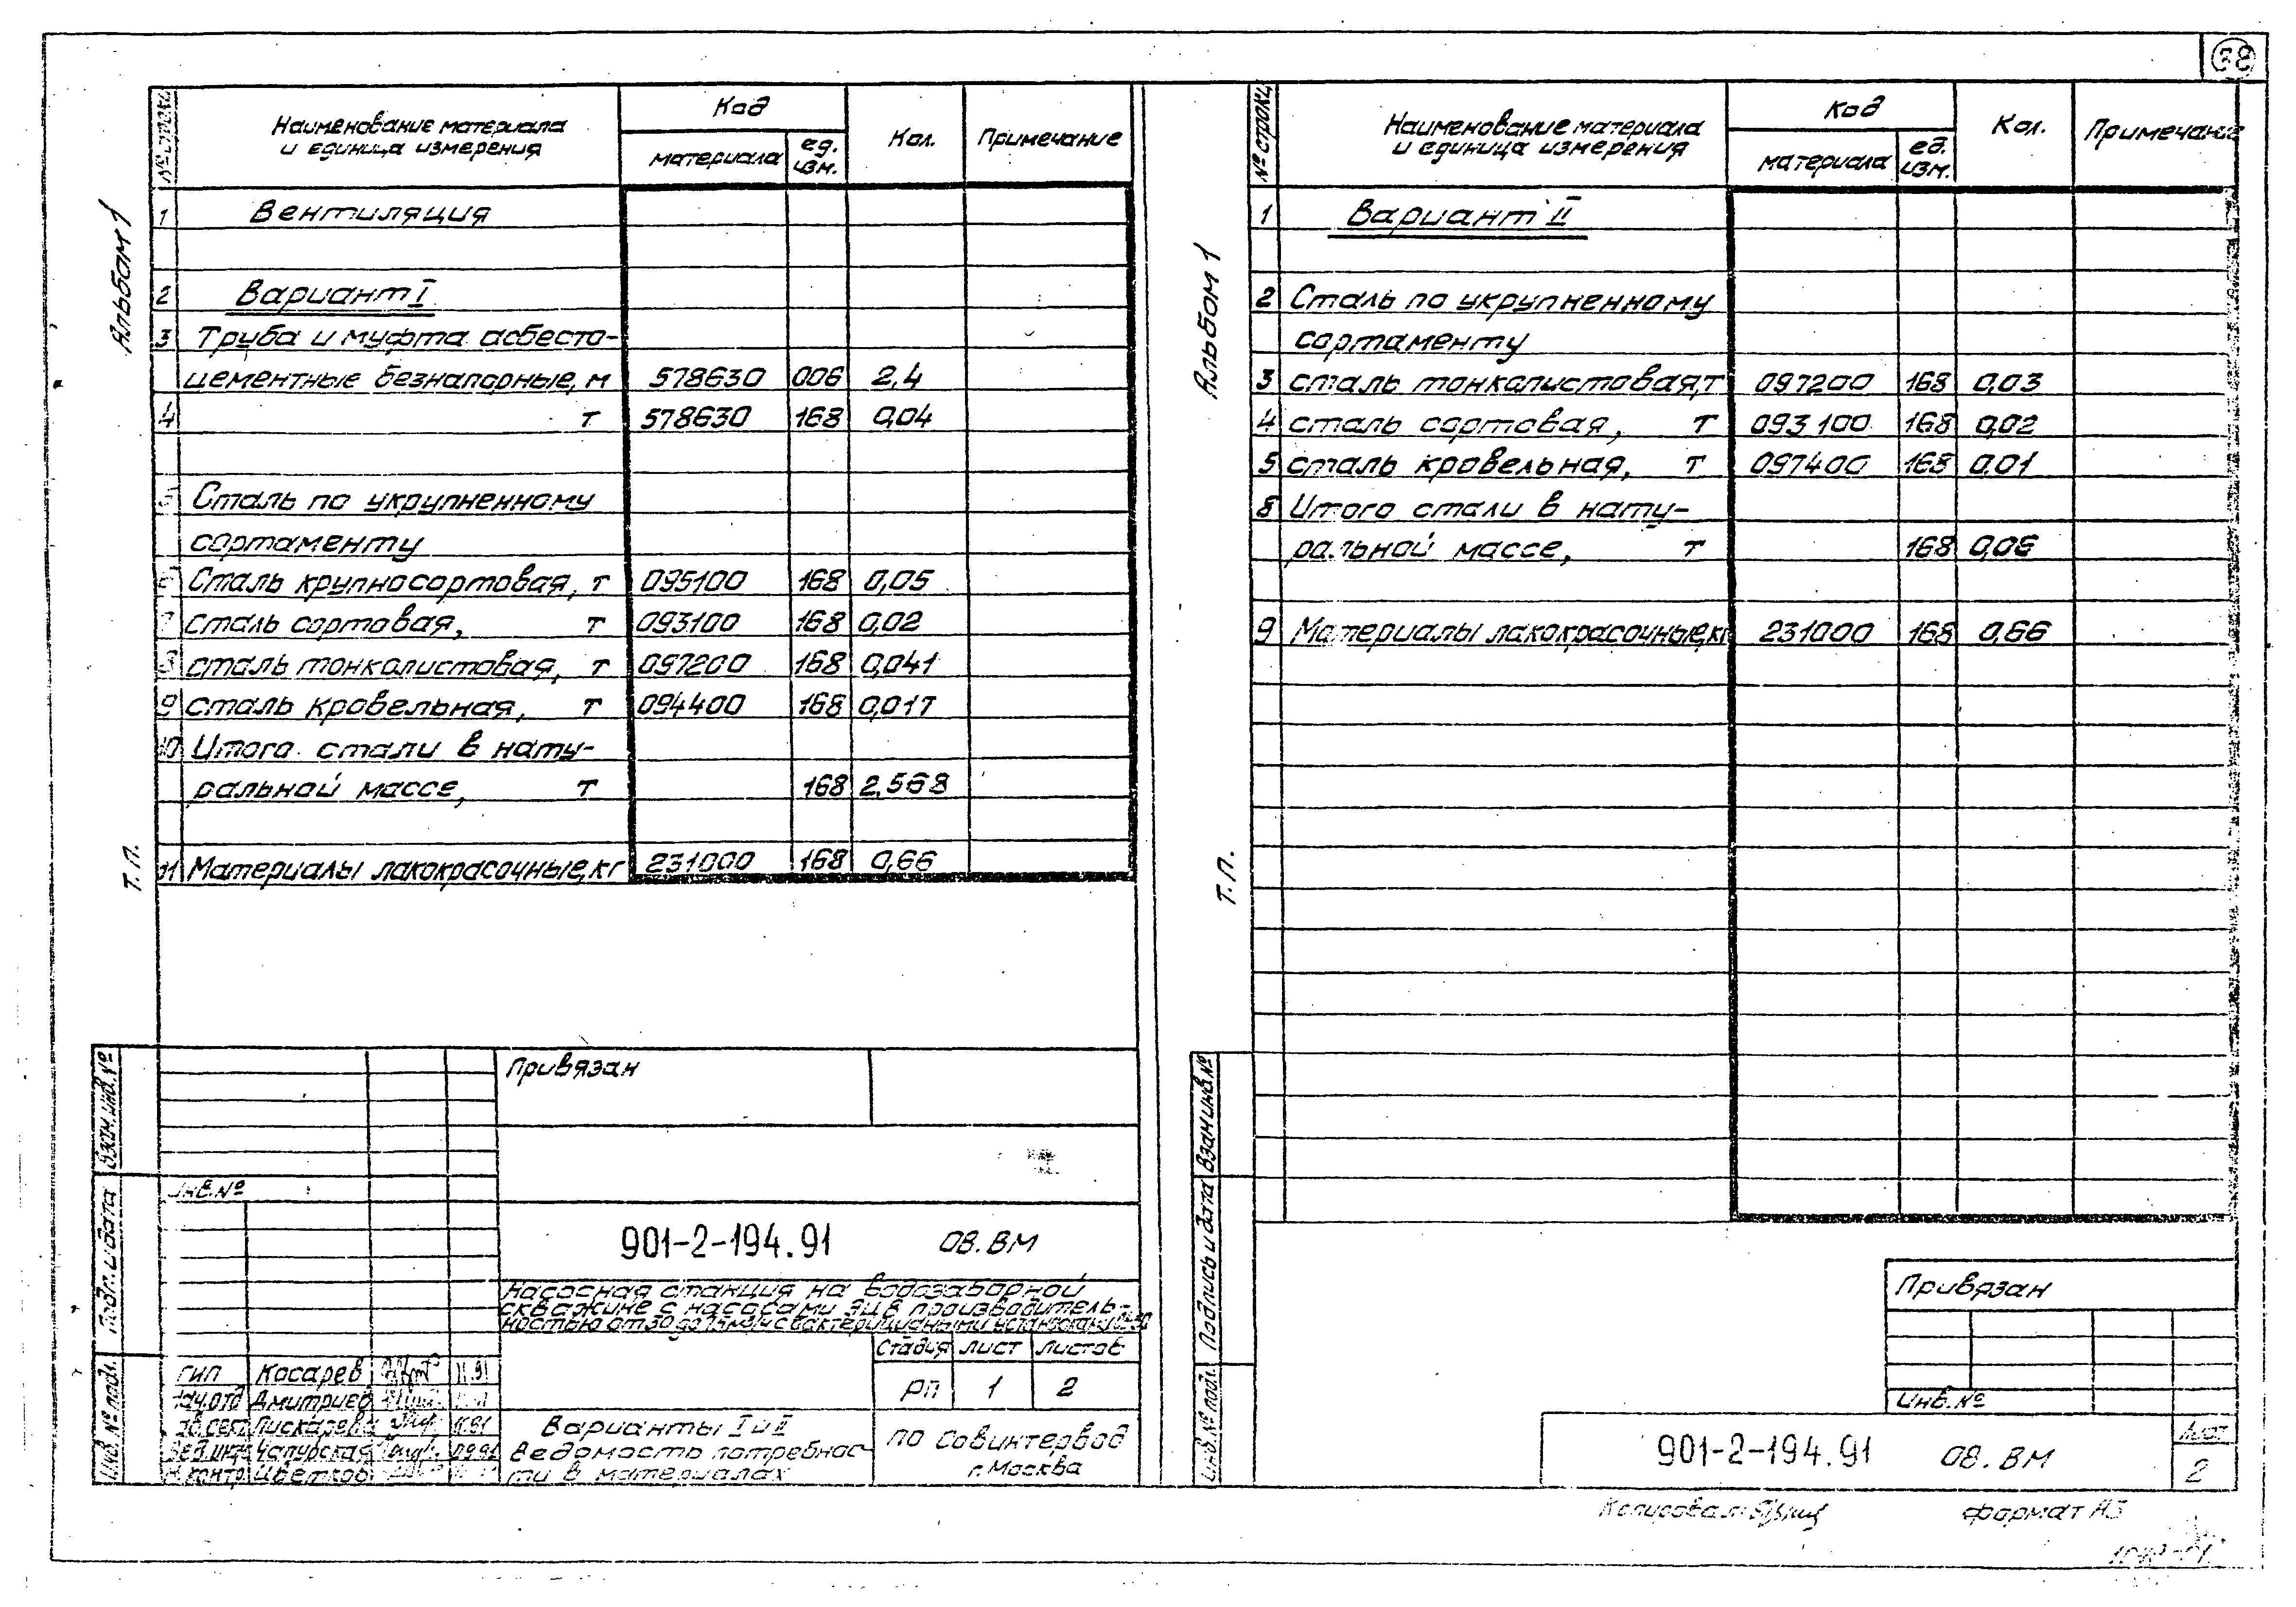 68
Альбом 1
Т.п.
№ строки
Наименование материала
и единица измерения
Код
материала
ед.
изм.
Кол.
Примечание
1 Вентиляция
2 Вариант I
3 Труба и муфта асбесто-
цементные безнапорные, м 578630 006 2,4
4 т 578630 168 0,04
5 Сталь по укрупненному
сортаменту
6 Сталь крупносортовая, т 095100 168 0,05
7 сталь сортовая, т 093100 168 0,02
8 сталь тонколистовая, т 097200 168 0,041
9 сталь кровельная, т 094400 168 0,017
10 Итого стали в нату-
ральной массе, т 168 2,568
11 Материалы лакокрасочные, кг 231000 168 0,66
Привязан
Инв. №
901-2-194.91 08.ВМ
Насосная станция на водозаборной
скважине с насосами ЭЦВ производитель-
ностью от 30 до
Стадия Лист Листов
РП 1 2
ГИП Косарев 11.91
Нач.отд Дмитриев
Пискарева 11.91
Вед.инж Чапурская 09.91
Н.контр. Цветков
Варианты I и II
Ведомость потребнос-
ти в материалах
ПО Совинтервод
г. Москва
Взам.инв.№
Подп. и дата
Инв.№ подл.
Альбом 1
Т.п.
№ строки
Наименование материала
и единица измерения
Код
материала
ед.
изм.
Кол.
Примечание
1 Вариант II
2 Сталь по укрупненному
сортаменту
3 сталь тонколистовая, т 097200 168 0,03
4 сталь сортовая, т 093100 168 0,02
5 сталь кровельная, т 097400 168 0,01
8 Итого стали в нату-
ральной массе, т 168 0,06
9 Материалы лакокрасочные, кг 231000 168 0,66
Привязан
Инв. №
901-2-194.91 08.ВМ
Лист
2
Взам.инв.№
Подпись и дата
Инв.№ подл.
Копировал:
Формат А3